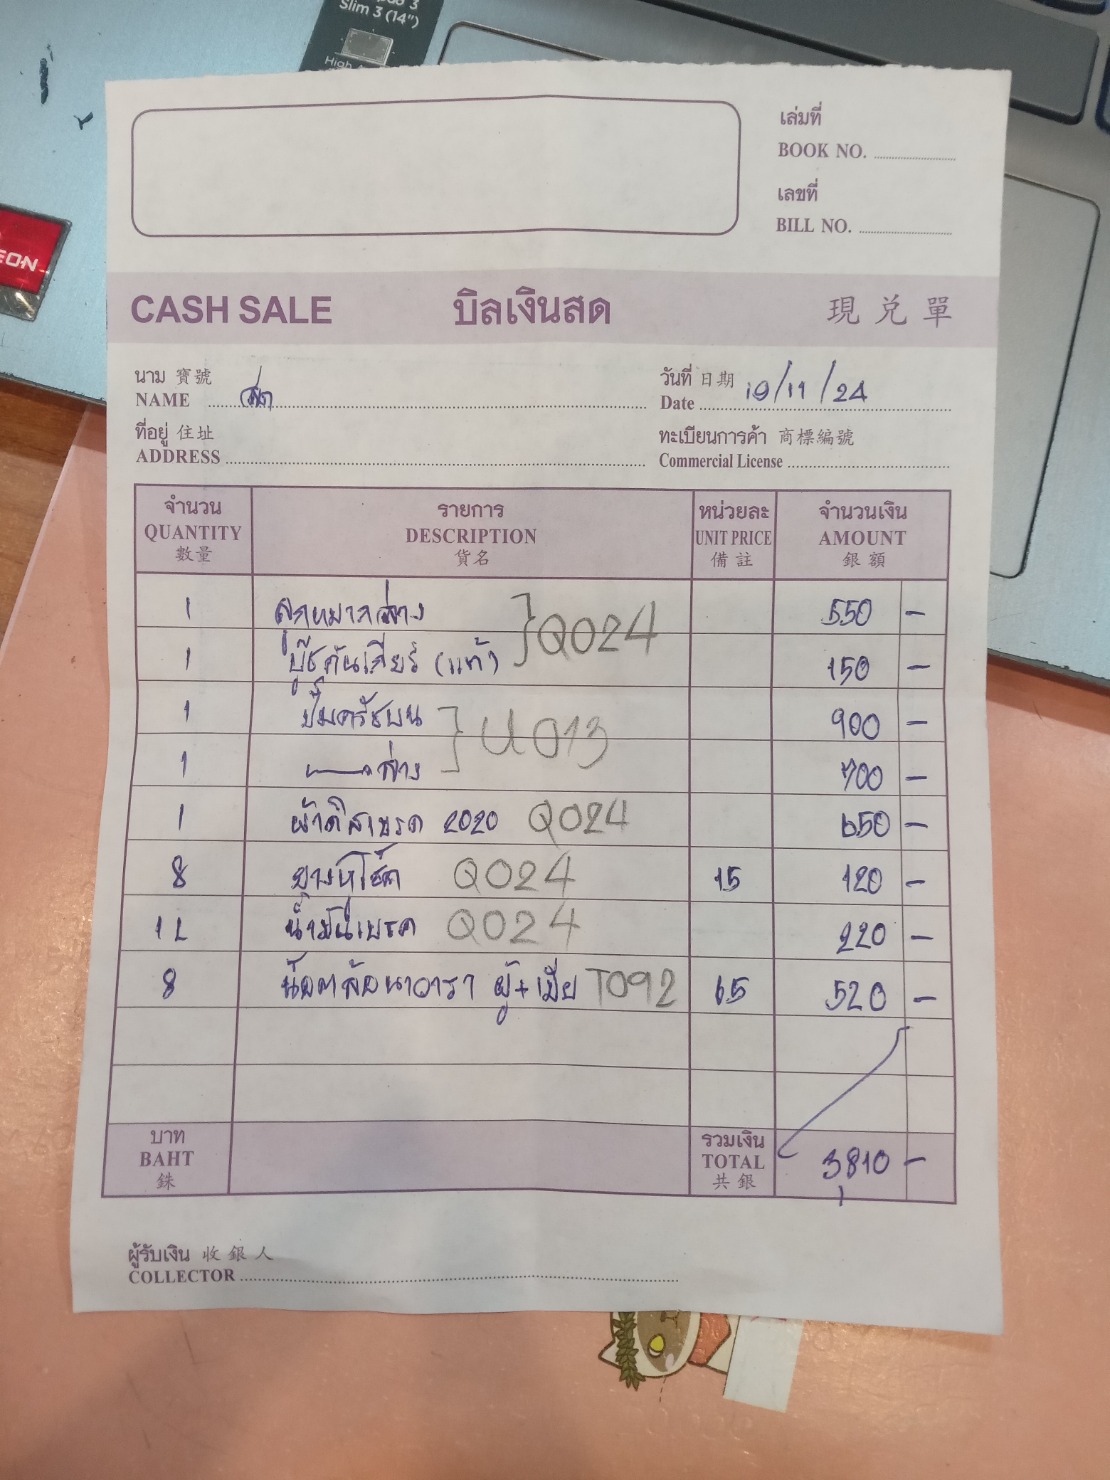 Slim 3 (14")
EON
เล่มที่
BOOK NO.
เลขที่
BILL NO.
CASH SALE บิลเงินสด 現兌單
นาม 寶號
NAME สด
วันที่ 日期 19/11/24
Date
ที่อยู่ 住址
ADDRESS
ทะเบียนการค้า 商標編號
Commercial License
จำนวน รายการ หน่วยละ จำนวนเงิน
QUANTITY DESCRIPTION UNIT PRICE AMOUNT
數量 貨名 備註 銀額
1 ลูกหมากล่าง Q024 550 -
1 บู๊ชคันเกียร์ (แท้) 150 -
1 ปั๊มครัชบน U013 900 -
1 ล่าง 700 -
1 ผ้าดิสเบรค 2020 Q024 650 -
8 ยางหูโช๊ค Q024 15 120 -
1L น้ำมันเบรค Q024 220 -
8 น๊อตล้อนาวารา ผู้+เมีย T092 65 520 -
บาท รวมเงิน
BAHT TOTAL 3810 -
銖 共銀
ผู้รับเงิน 收銀人
COLLECTOR